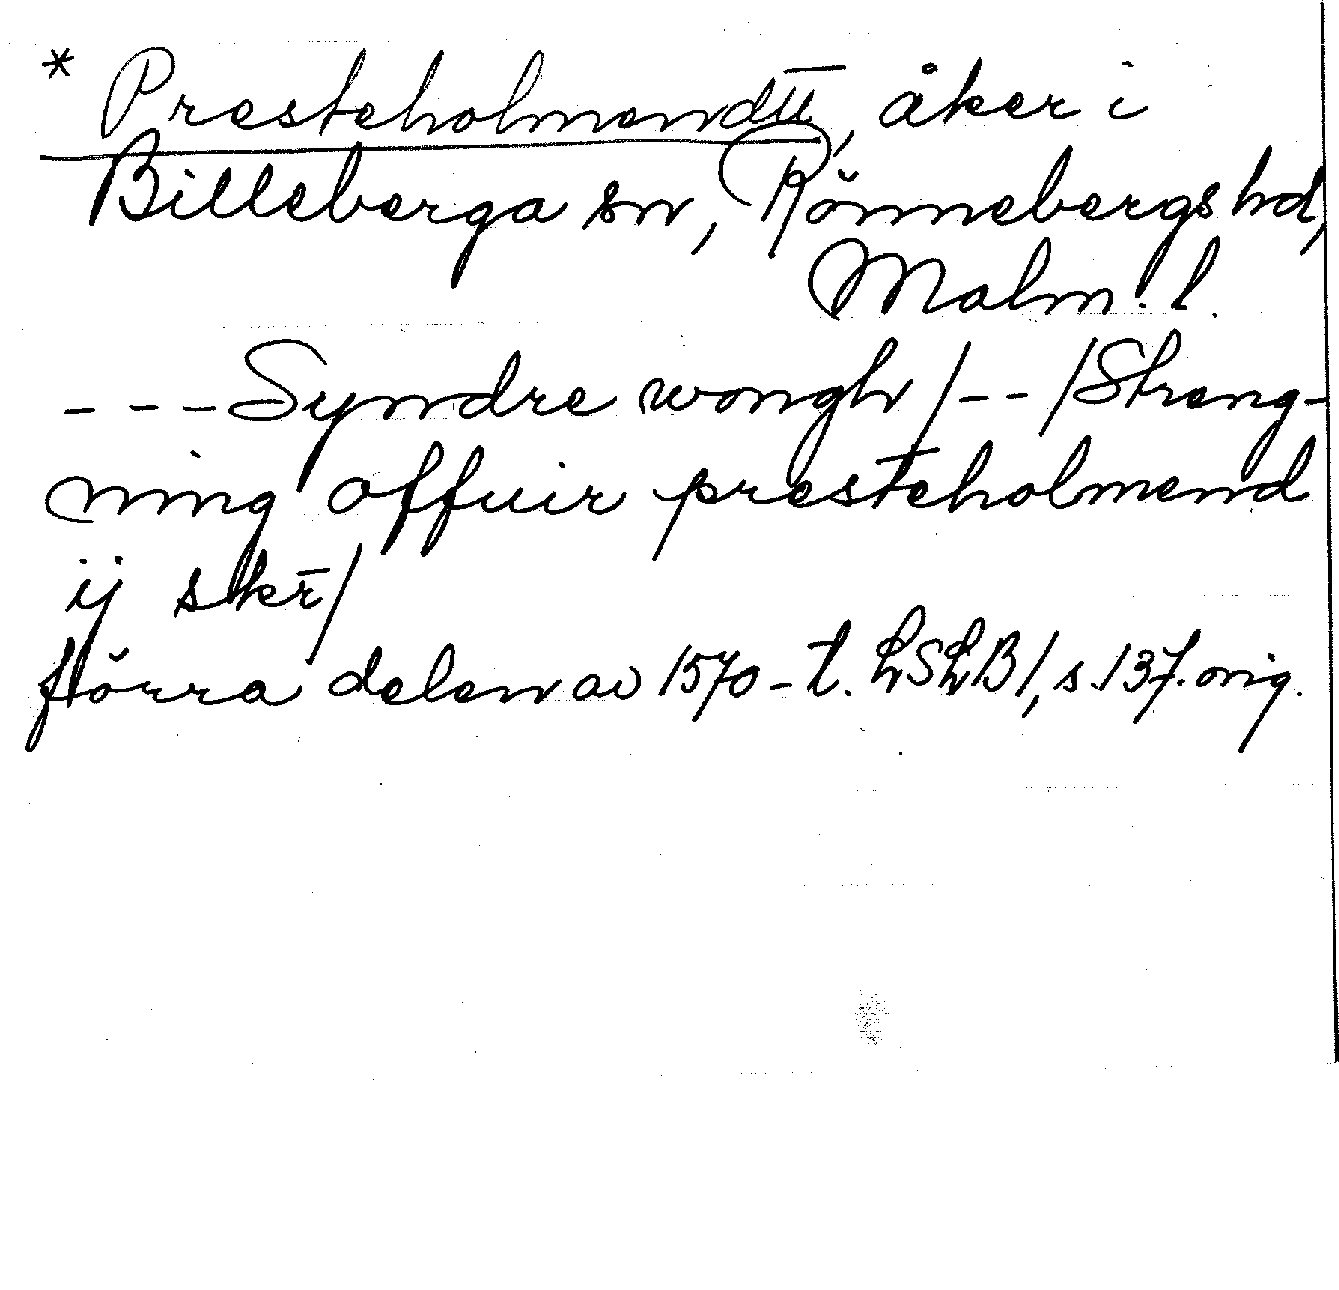 * Presteholmend, åker i
Billeberga sn, Rönnebergs hd,
Malm. l.
---Syndre wongh/--/Streng-
ning offuir presteholmend
ij skr̄/
förra delen av 1570-t. LSLB1, s.137. orig.